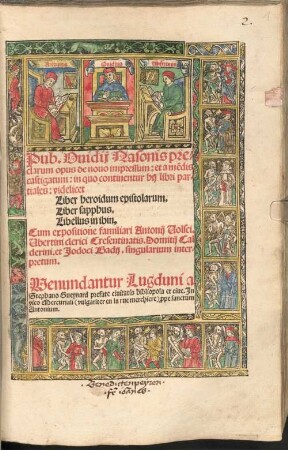 2.
Ouidius
Pub. Ouidij Nasonis pre
clarum opus de nouo impressum: et a mēdis
castigatum: in quo continentur hij libri par
tiales: videlicet
Liber heroidum epistolarum.
Liber sapphus.
Libellus in ibin.
Cum expositione familiari Antonij Volsci.
Ubertini clerici Crescentinatis. Domitij Cal
derini. et Jodoci Badij. singularium inter
pretum.
Uenundantur Lugduni a
Stephano Gueynard prefate ciuitatis bibliopola et ciue. In
vico mercuriali (vulgariter en la rue merchiere) ppe sanctum
Antonium.